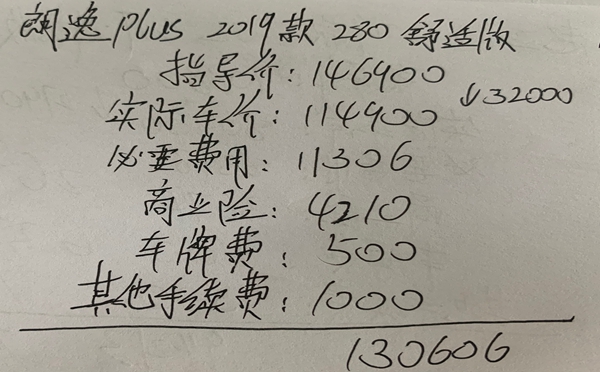 朗逸 plus 2019款 280 舒适版
指导价: 146900
↓32000
实际车价: 114900
必要费用: 11306
商业险: 4210
车牌费: 500
其他手续费: 1000
130606